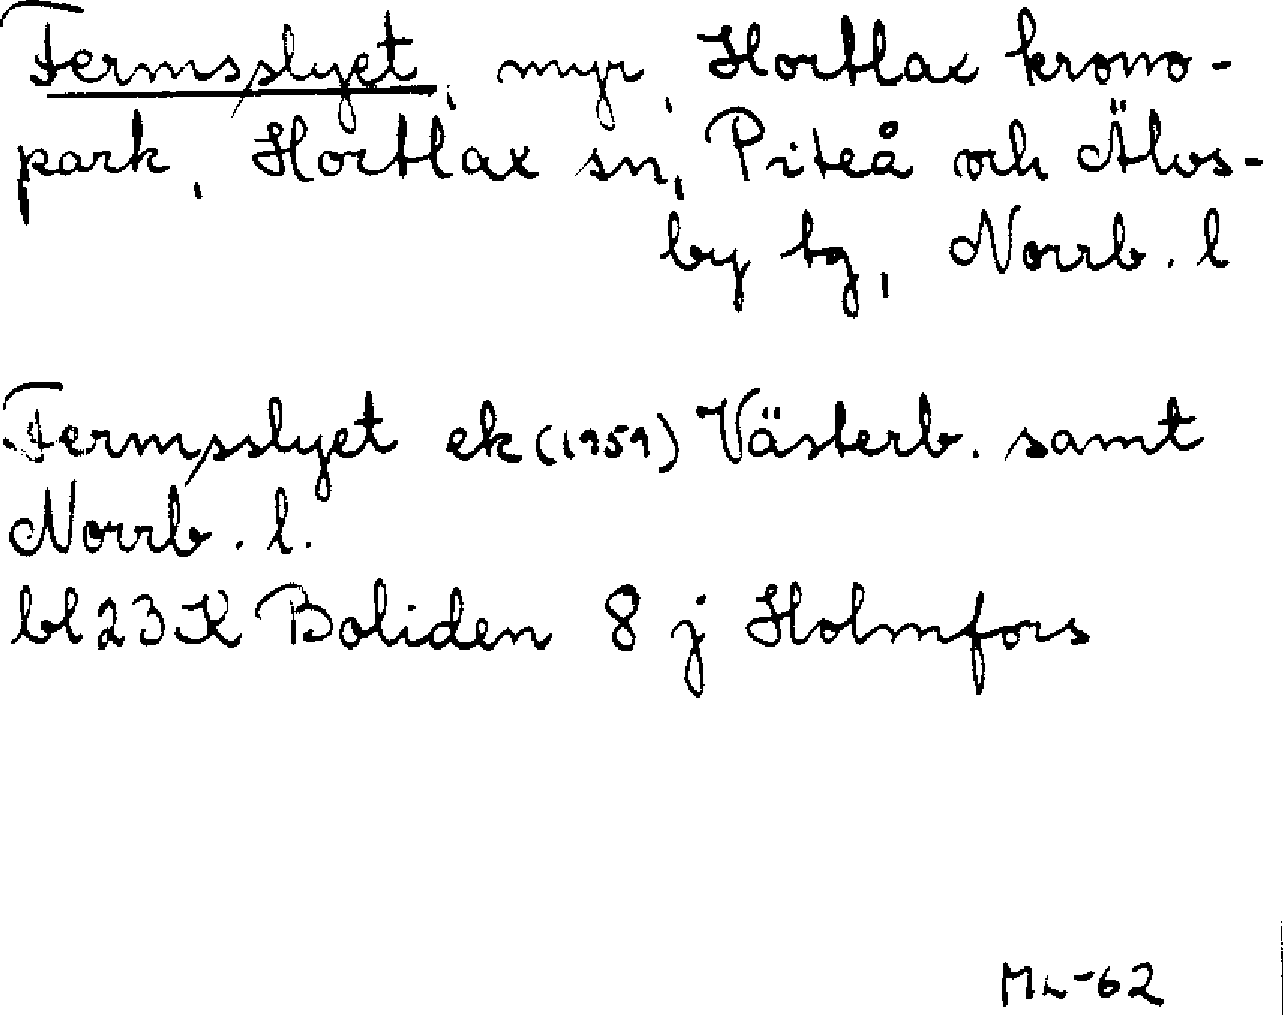 Fermsslyet, myr, Hortlax krono-
park, Hortlax sn, Piteå och Älvs-
by tg, Norrb. l
Fermsslyet ek (1959) Västerb. samt
Norrb. l.
bl 23 K Boliden 8 j Holmfors
ML-62